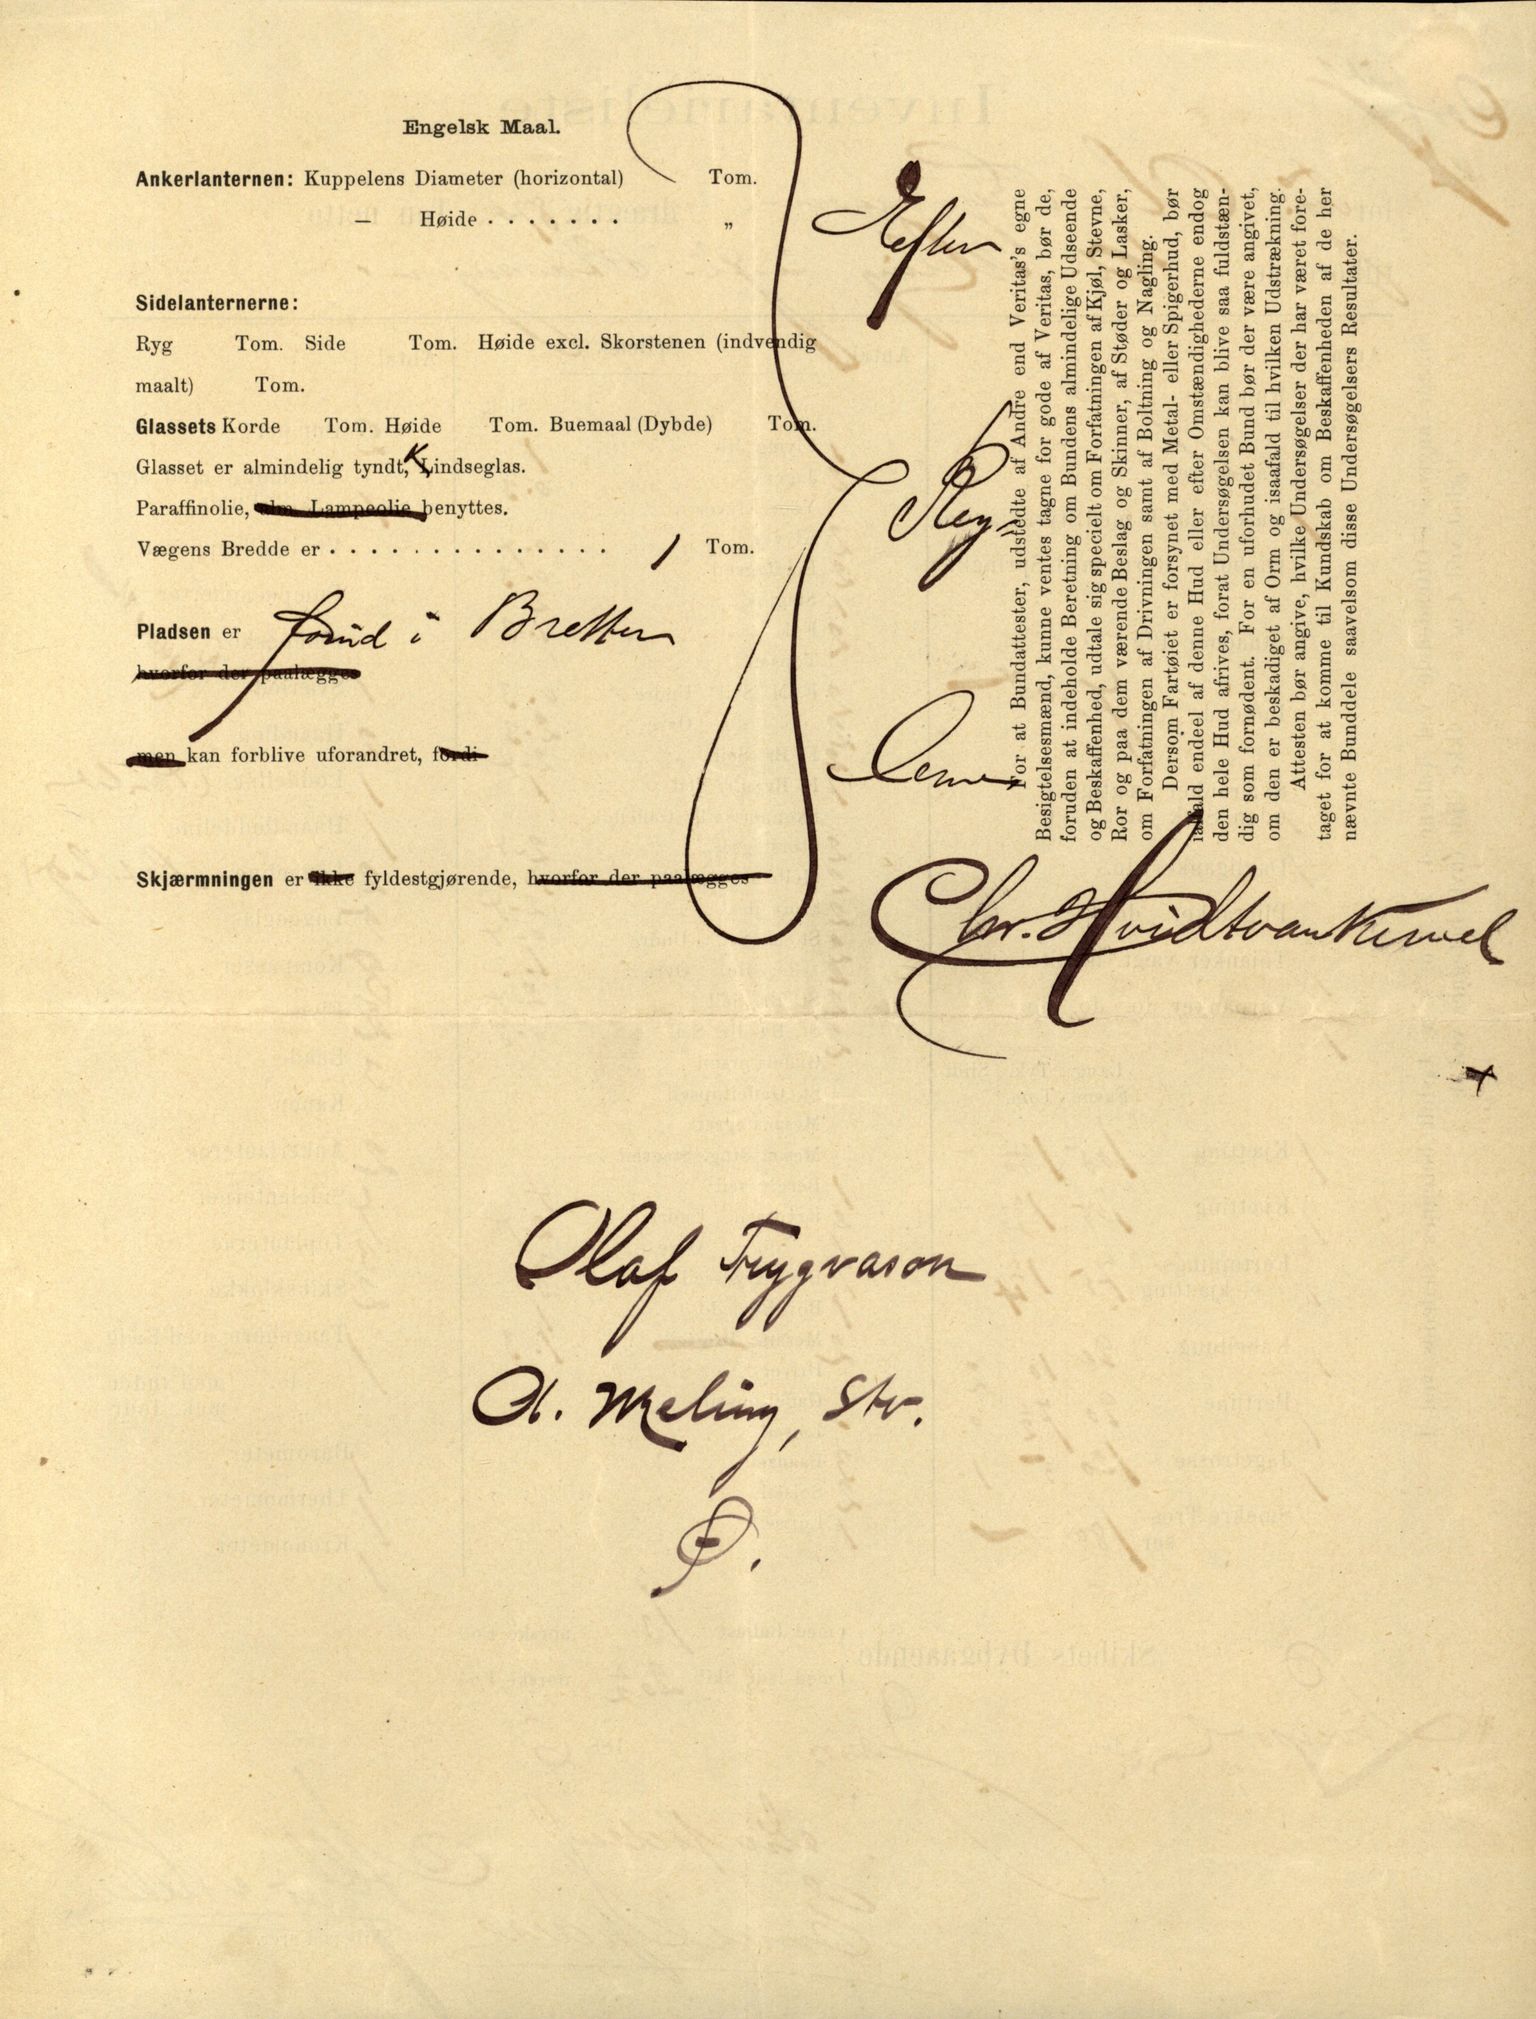 Engelsk Maal.
Ankerlanternen: Kuppelens Diameter (horizontal) Tom.
— Høide . . . . . . . „
Sidelanternerne:
Ryg Tom. Side Tom. Høide excl. Skorstenen (indvendig
maalt) Tom.
Glassets Korde Tom. Høide Tom. Buemaal (Dybde) Tom.
Glasset er almindelig tyndt, Lindseglas.
Paraffinolie, alm. Lampeolie benyttes.
Vægens Bredde er . . . . . . . . . . . . . . 1 Tom.
Pladsen er forud i Bretten
hvorfor der paalægges
men kan forblive uforandret, fordi
Skjærmningen er ikke fyldestgjørende, hvorfor der paalægges
Efter
Reg-
lerne
For at Bundattester, udstedte af Andre end Veritas's egne
Besigtelsesmænd, kunne ventes tagne for gode af Veritas, bør de,
foruden at indeholde Beretning om Bundens almindelige Udseende
og Beskaffenhed, udtale sig specielt om Forfatningen af Kjøl, Stevne,
Ror og paa dem værende Beslag og Skinner, af Støder og Lasker,
om Forfatningen af Drivningen samt af Boltning og Nagling.
Dersom Fartøiet er forsynet med Metal- eller Spigerhud, bør
iafald endeel af denne Hud eller efter Omstændighederne endog
den hele Hud afrives, forat Undersøgelsen kan blive saa fuldstæn-
dig som fornødent. For en uforhudet Bund bør der være angivet,
om den er beskadiget af Orm og isaafald til hvilken Udstrækning.
Attesten bør angive, hvilke Undersøgelser der har været fore-
taget for at komme til Kundskab om Beskaffenheden af de her
nævnte Bunddele saavelsom disse Undersøgelsers Resultater.
Chr. Hvidt
Olaf Trygvason
A. Meling, Stv.